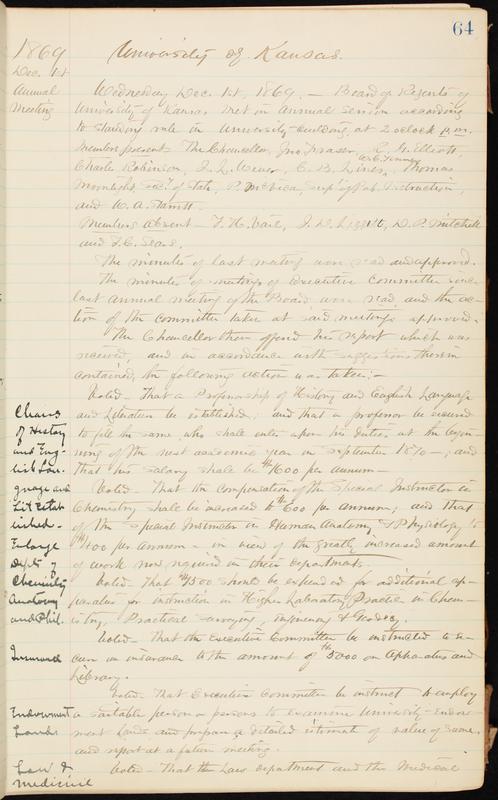 64
1869
University of Kansas.
Dec. 1st
Annual
Meeting
Wednesday Dec. 1st, 1869. — Board of Regents of
University of Kansas met in annual session according
to standing rule in University building, at 2 o'clock p.m.
Members present: The Chancellor, Jno. Fraser, R. G. Elliott,
Charles Robinson, C. B. Lines, Thomas
Moonlight, Sec. of State, P. McVicar, Sup. of Pub. Instruction,
and W. A. Starrett.
Members absent — T. H. Vail, D. P. Mitchell
and T. C. Sears.
The minutes of last meeting were read and approved.
The minutes of meetings of Executive Committee since
last annual meeting of the Board were read and the ac-
tion of the committee taken at said meetings approved.
The Chancellor then offered his report which was
received, and in accordance with suggestions therein
contained, the following action was taken: —
Chairs
of History
and Eng-
lish Lan-
guage and
Lit Estab
lished.
Voted — That a Professorship of History and English Language
and Literature be established, and that a professor be secured
to fill the same, who shall enter upon his duties at the begin-
ning of the next academic year in September 1870 —; and
that his salary shall be $1600 per annum —
Voted — That the compensation of the Special Instructor in
Chemistry shall be increased to $600 per annum; and that
of the Special Instructor in Human Anatomy & Physiology to
$400 per annum — in view of the greatly increased amount
of work now required in their departments.
Enlarge
Depts of
Chemistry
Anatomy
and Phil.
Voted — That $1500 should be expended for additional ap-
paratus for instruction in Higher Laboratory Practice in Chem-
istry, Practical Surveying, Engineering & Geodesy.
Insurance
Voted — That the Executive Committee be instructed to se-
cure an insurance to the amount of $5000 on Apparatus and
Library.
Endowment
Lands
Voted — That Executive Committee be instruct to employ
a suitable person or persons to examine University Endow-
ment Lands and prepare a detailed estimate of value of same,
and report at a future meeting.
Law &
Medicine
Voted — That the Law department and the Medical